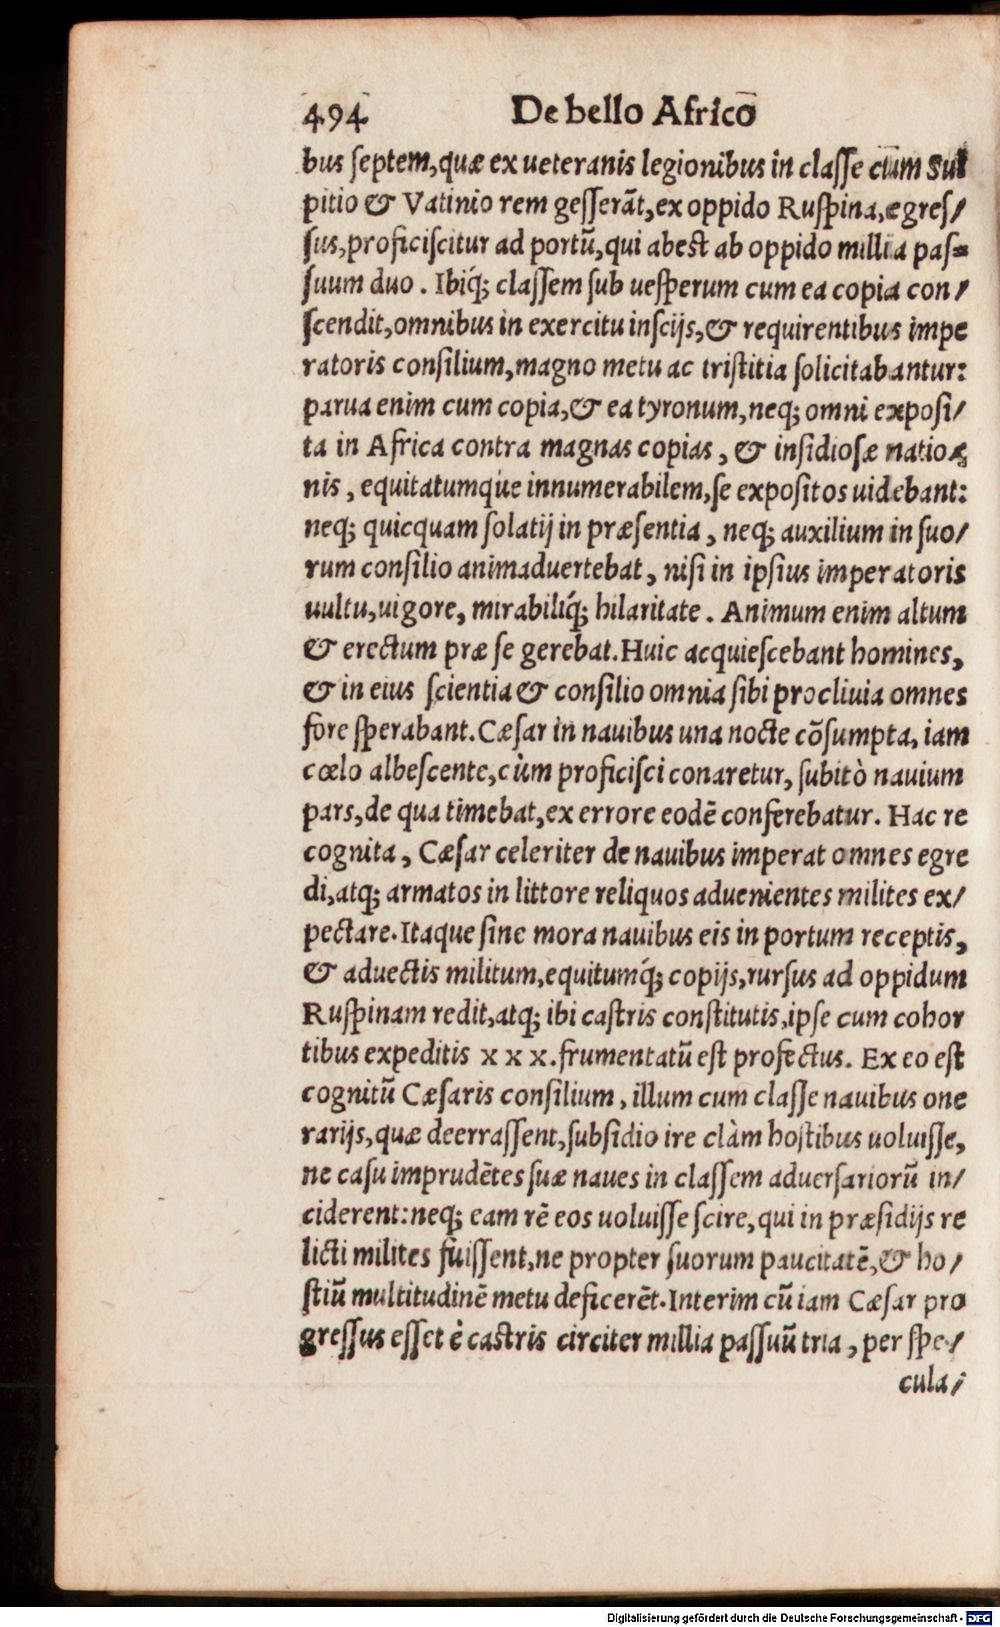 494 De bello Africo
bus ſeptem,quæ ex ueteranis legionibus in claſſe cum Sul
pitio & Vatinio rem geſſerãt,ex oppido Ruſpina,egreſ/
ſus,proficiſcitur ad portũ,qui abest ab oppido millia paſ=
ſuum duo. Ibiq́; claſſem ſub ueſperum cum ea copia con/
ſcendit,omnibus in exercitu inſcijs,& requirentibus impe
ratoris conſilium,magno metu ac triſtitia ſolicitabantur:
parua enim cum copia,& ea tyronum,neq; omni expoſi/
ta in Africa contra magnas copias, & inſidioſæ natio
nis, equitatumqúe innumerabilem,ſe expoſitos uidebant:
neq; quicquam ſolatij in præſentia, neq; auxilium in ſuo/
rum conſilio animaduertebat, niſi in ipſius imperatoris
uultu,uigore, mirabiliq́; hilaritate. Animum enim altum
& erectum præ ſe gerebat.Huic acquieſcebant homines,
& in eius ſcientia & conſilio omnia ſibi procliuia omnes
fore ſperabant.Cæſar in nauibus una nocte cõſumpta, iam
cœlo albeſcente,cùm proficiſci conaretur, ſubitò nauium
pars,de qua timebat,ex errore eodẽ conferebatur. Hac re
cognita, Cæſar celeriter de nauibus imperat omnes egre
di,atq; armatos in littore reliquos aduenientes milites ex/
pectare.Itaque ſine mora nauibus eis in portum receptis,
& aduectis militum,equitumq́; copijs,rurſus ad oppidum
Ruſpinam redit,atq; ibi caſtris conſtitutis,ipſe cum cohor
tibus expeditis x x x.frumentatũ est profectus. Ex eo est
cognitũ Cæſaris conſilium, illum cum claſſe nauibus one
rarijs,quæ deerraſſent,ſubſidio ire clàm hoſtibus uoluiſſe,
ne caſu imprudẽtes ſuæ naues in claſſem aduerſariorũ in/
ciderent:neq; eam rẽ eos uoluiſſe ſcire,qui in præſidijs re
licti milites fuiſſent,ne propter ſuorum paucitatẽ,& ho/
ſtiũ multitudinẽ metu deficerẽt.Interim cũ iam Cæſar pro
greſſus eſſet è caſtris circiter millia paſſuũ tria, per ſpe/
cula/
Digitalisierung gefördert durch die Deutsche Forschungsgemeinschaft - DFG